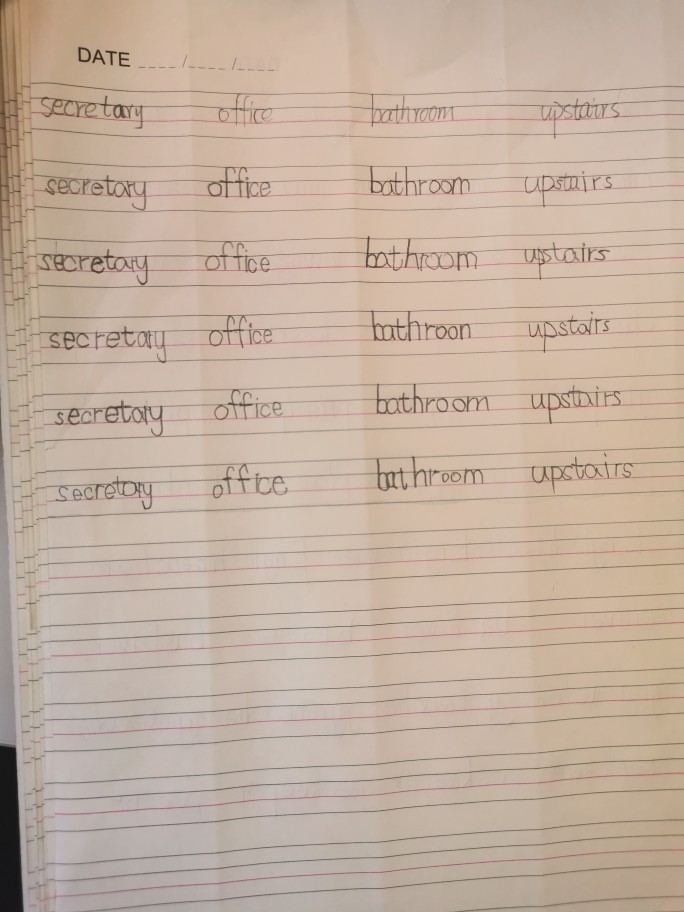 DATE ____/____/____
secretary office bathroom upstairs
secretary office bathroom upstairs
secretary office bathroom upstairs
secretary office bathroon upstairs
secretary office bathroom upstairs
secretary office bathroom upstairs